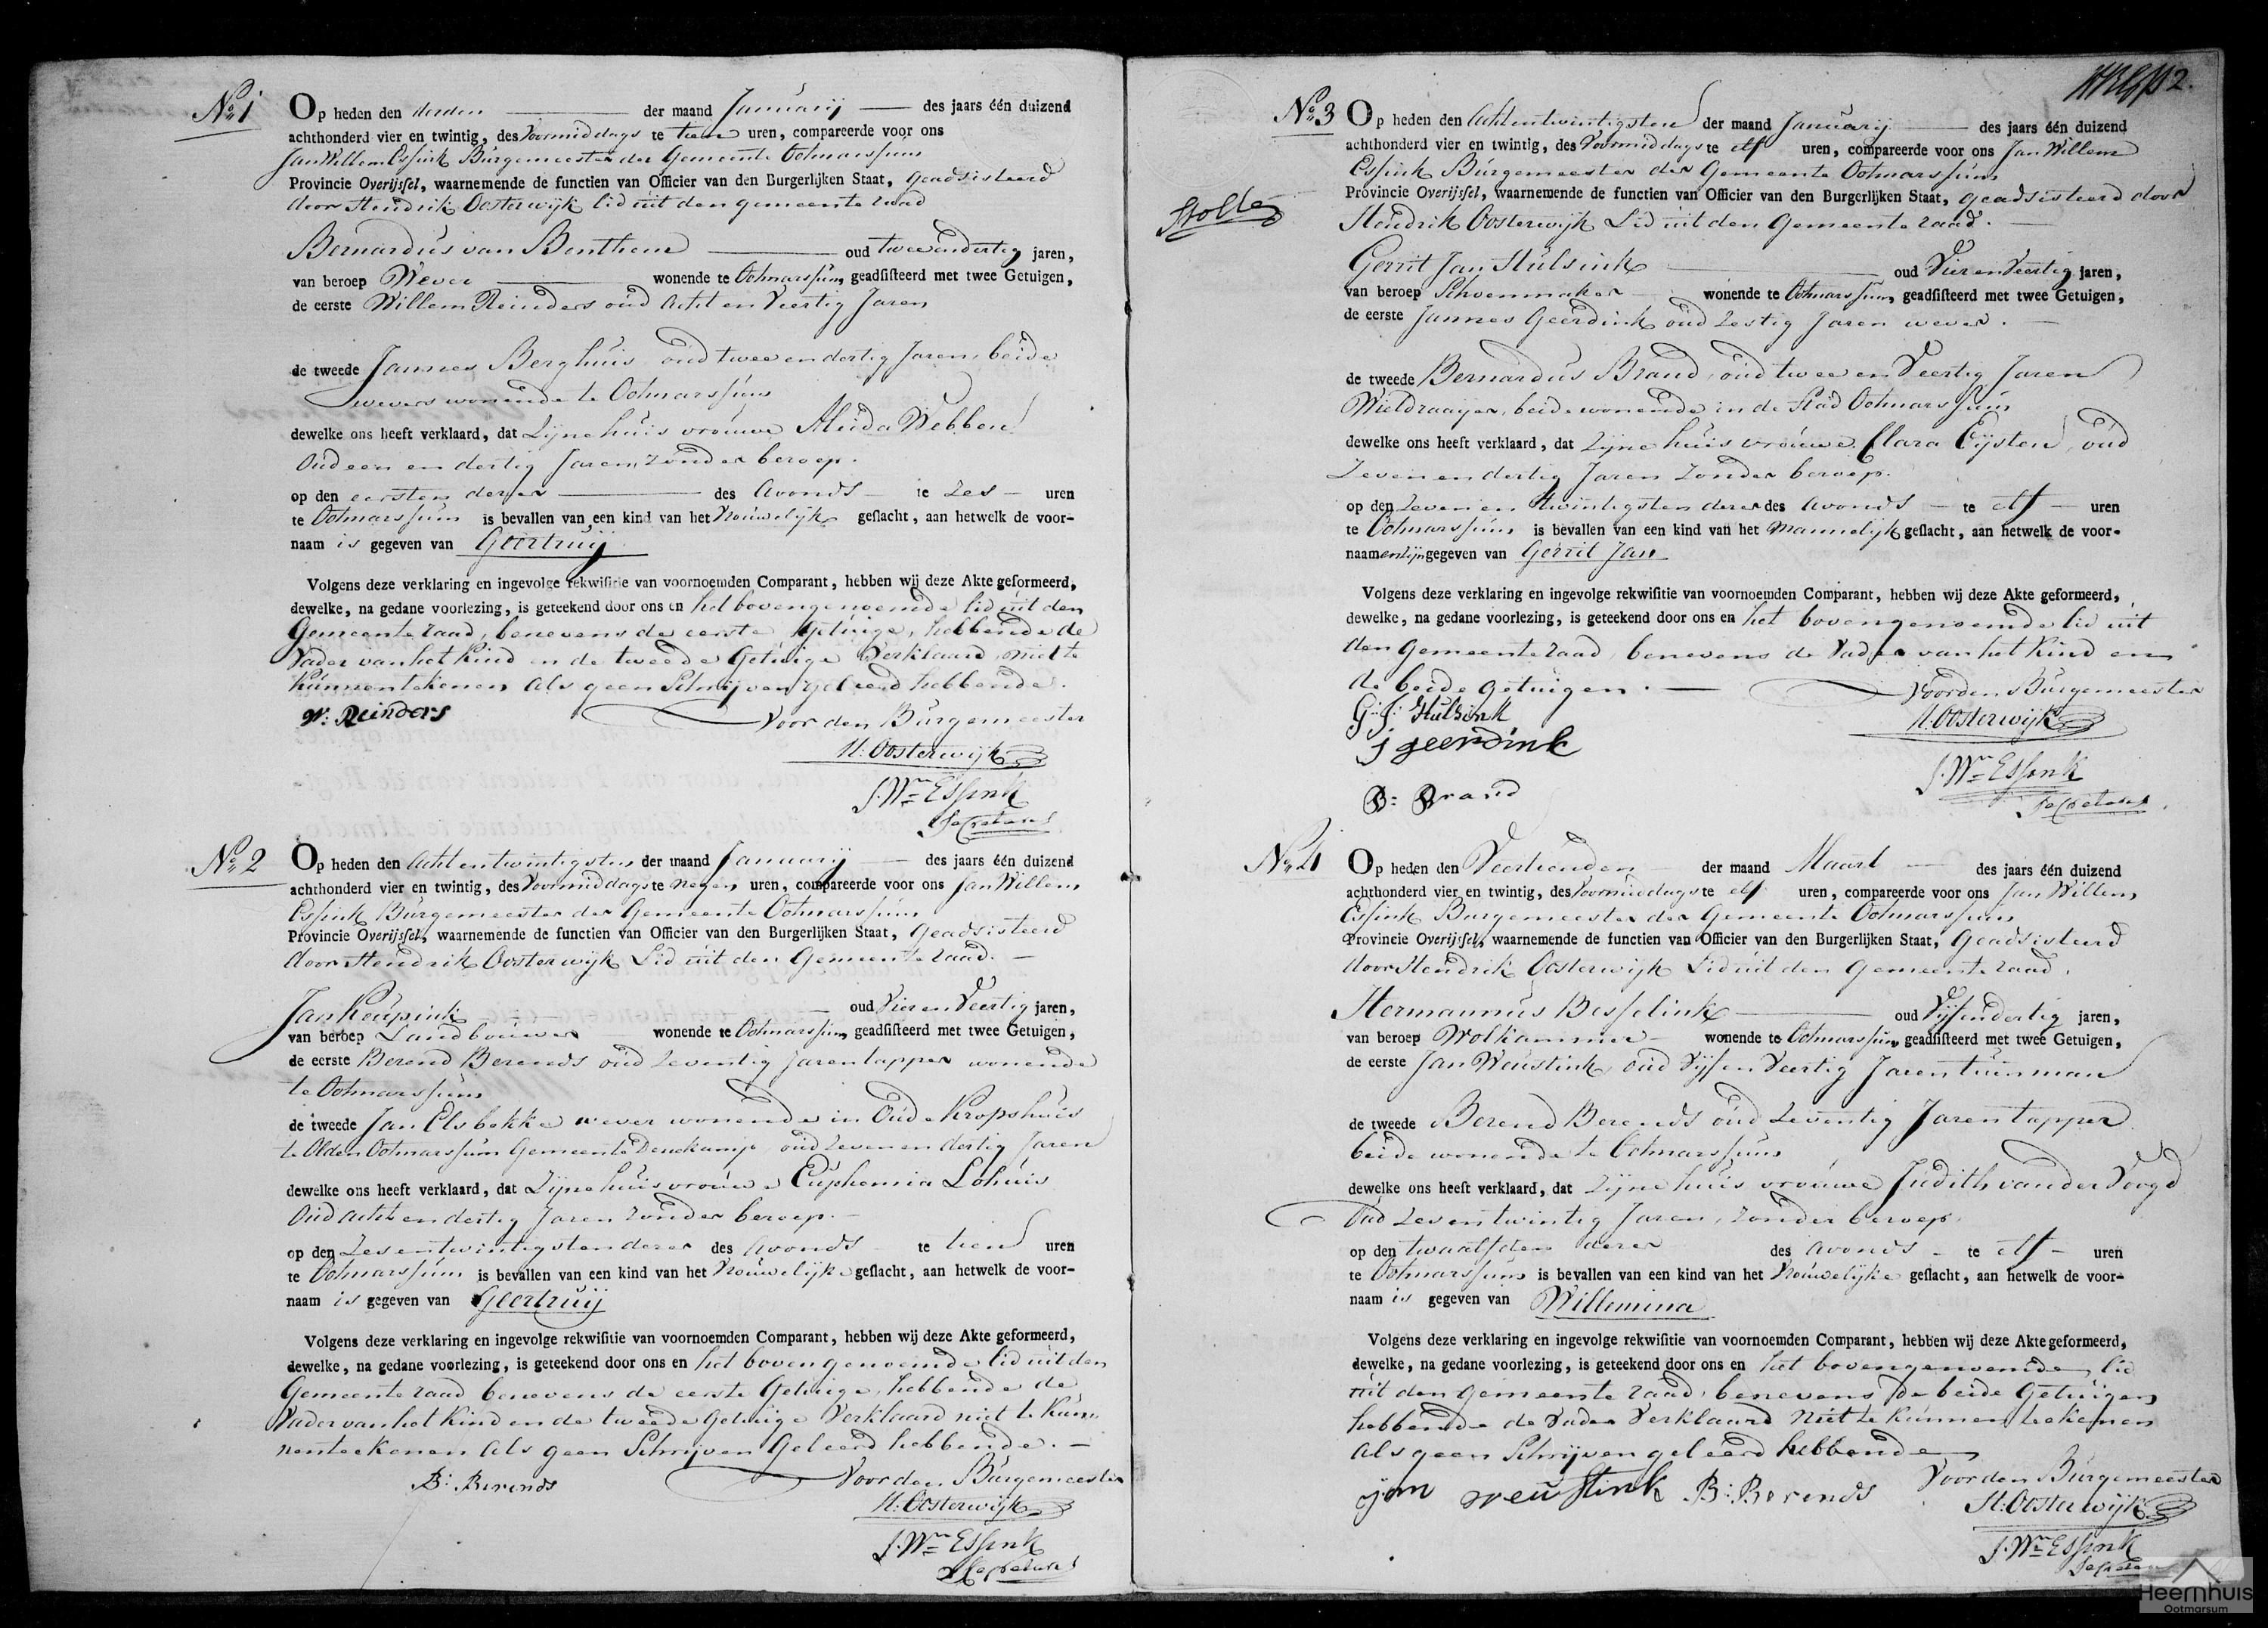 No. 1
Op heden den derden der maand Januarij des jaars één duizend
achthonderd vier en twintig, des Voormiddags te tien uren, compareerde voor ons
Jan Willem Essink Burgemeester der Gemeente Ootmarssum
Provincie Overijssel, waarnemende de functien van Officier van den Burgerlijken Staat, geadsisteerd
door Hendrik Oosterwijk lid uit den gemeente raad
Bernardus van Benthem oud twee en dertig jaren,
van beroep Wever wonende te Ootmarssum, geadsisteerd met twee Getuigen,
de eerste Willem Reinders oud acht en Veertig Jaren
de tweede Jannes Berghuis oud twee en dertig Jaren, beide
wevers wonende te Ootmarssum
dewelke ons heeft verklaard, dat Zijne huisvrouwe Aleida Webben
Oud een en dertig Jaren, Zonder beroep.
op den eersten dezer des Avonds te Zes uren
te Ootmarssum is bevallen van een kind van het Vrouwelijk geslacht, aan hetwelk de voor-
naam is gegeven van Geertruij
Volgens deze verklaring en ingevolge rekwisitie van voornoemden Comparant, hebben wij deze Akte geformeerd,
dewelke, na gedane voorlezing, is geteekend door ons en het bovengenoemde lid uit den
Gemeente raad, benevens de eerste Getuige, hebbende de
Vader van het Kind en de tweede Getuige Verklaard niet te
Kunnen tekenen Als geen Schrijven geleerd hebbende.
W: Reinders
Voor den Burgemeester
H: Oosterwijk
J. Wm Essink
Secretaris
No. 2
Op heden den Acht en twintigsten der maand Januarij des jaars één duizend
achthonderd vier en twintig, des Voormiddags te negen uren, compareerde voor ons Jan Willem
Essink Burgemeester der Gemeente Ootmarssum
Provincie Overijssel, waarnemende de functien van Officier van den Burgerlijken Staat, Geadsisteerd
door Hendrik Oosterwijk Lid uit den Gemeente raad.
Jan Keupink oud Vier en Veertig jaren,
van beroep Landbouwer wonende te Ootmarssum geadsisteerd met twee Getuigen,
de eerste Berend Berends oud Zeventig Jaren tapper wonende
te Ootmarssum
de tweede Jan Elsbekke wever wonende in Oude Kropshuis
te Olden Ootmarssum Gemeente Denekamp oud Zeven en dertig Jaren
dewelke ons heeft verklaard, dat Zijne huisvrouwe Euphemia Lohuis
Oud Acht en dertig Jaren Zonder beroep.
op den Zes en twintigsten dezer des Avonds te tien uren
te Ootmarssum is bevallen van een kind van het Vrouwelijke geslacht, aan hetwelk de voor-
naam is gegeven van Geertruij
Volgens deze verklaring en ingevolge rekwisitie van voornoemden Comparant, hebben wij deze Akte geformeerd,
dewelke, na gedane voorlezing, is geteekend door ons en het boven genoemde lid uit den
Gemeente raad benevens de eerste Getuige, hebbende de
Vader van het Kind en de tweede Getuige Verklaard niet te Kun-
nen teekenen Als geen Schrijven Geleerd hebbende.
B: Berends
Voor den Burgemeester
H: Oosterwijk
J. Wm Essink
Secretaris
2.
No. 3
Op heden den Acht en twintigsten der maand Januarij des jaars één duizend
achthonderd vier en twintig, des Voormiddags te elf uren, compareerde voor ons Jan Willem
Essink Burgemeester der Gemeente Ootmarssum
Provincie Overijssel, waarnemende de functien van Officier van den Burgerlijken Staat, geadsisteerd door
Hendrik Oosterwijk Lid uit den Gemeente raad.
Gerrit Jan Hulsink oud Vier en Veertig jaren,
van beroep Schoenmaker wonende te Ootmarssum, geadsisteerd met twee Getuigen,
de eerste Jannes Geerdink oud Zestig Jaren wever.
de tweede Bernardus Brand, oud twee en Veertig Jaren
Wieldraaijer, beide wonende in de Stad Ootmarssum
dewelke ons heeft verklaard, dat Zijne huisvrouwe Clara Eijsten, oud
Zeven en dertig Jaren Zonder beroep.
op den Zeven en twintigsten dezer des Avonds te elf uren
te Ootmarssum is bevallen van een kind van het Mannelijk geslacht, aan hetwelk de voor-
naamen zijn gegeven van Gerrit Jan
Volgens deze verklaring en ingevolge rekwisitie van voornoemden Comparant, hebben wij deze Akte geformeerd,
dewelke, na gedane voorlezing, is geteekend door ons en het bovengenoemde lid uit
den Gemeente raad, benevens de Vader van het Kind en
de beide Getuigen.
Voor den Burgemeester
G: J: Hulsink
H: Oosterwijk
j geerdink
J. Wm Essink
B: Brand
Secretaris
No. 4
Op heden den Veertienden der maand Maart des jaars één duizend
achthonderd vier en twintig, des Voormiddags te elf uren, compareerde voor ons Jan Willem
Essink Burgemeester der Gemeente Ootmarssum
Provincie Overijssel, waarnemende de functien van Officier van den Burgerlijken Staat, Geadsisteerd
door Hendrik Oosterwijk Lid uit den Gemeente raad.
Hermannus Besselink oud Vijf en dertig jaren,
van beroep Wolkammer wonende te Ootmarssum, geadsisteerd met twee Getuigen,
de eerste Jan Weustink, oud Vijf en Veertig Jaren tuinman
de tweede Berend Berends oud Zeventig Jaren tapper
beide wonende te Ootmarssum
dewelke ons heeft verklaard, dat Zijne huisvrouwe Judith van der Voogd
Oud Zes en twintig Jaren, Zonder beroep.
op den twaalfden dezer des Avonds te elf uren
te Ootmarssum is bevallen van een kind van het Vrouwelijke geslacht, aan hetwelk de voor-
naam is gegeven van Willemina
Volgens deze verklaring en ingevolge rekwisitie van voornoemden Comparant, hebben wij deze Akte geformeerd,
dewelke, na gedane voorlezing, is geteekend door ons en het bovengenoemde lid
uit den Gemeente raad, benevens de beide Getuigen
hebbende de Vader Verklaard niet te kunnen teekenen
Als geen Schrijven geleerd hebbende
Voor den Burgemeester
jan weustink B: Berends
H: Oosterwijk
J. Wm Essink
Heemhuis
Ootmarsum